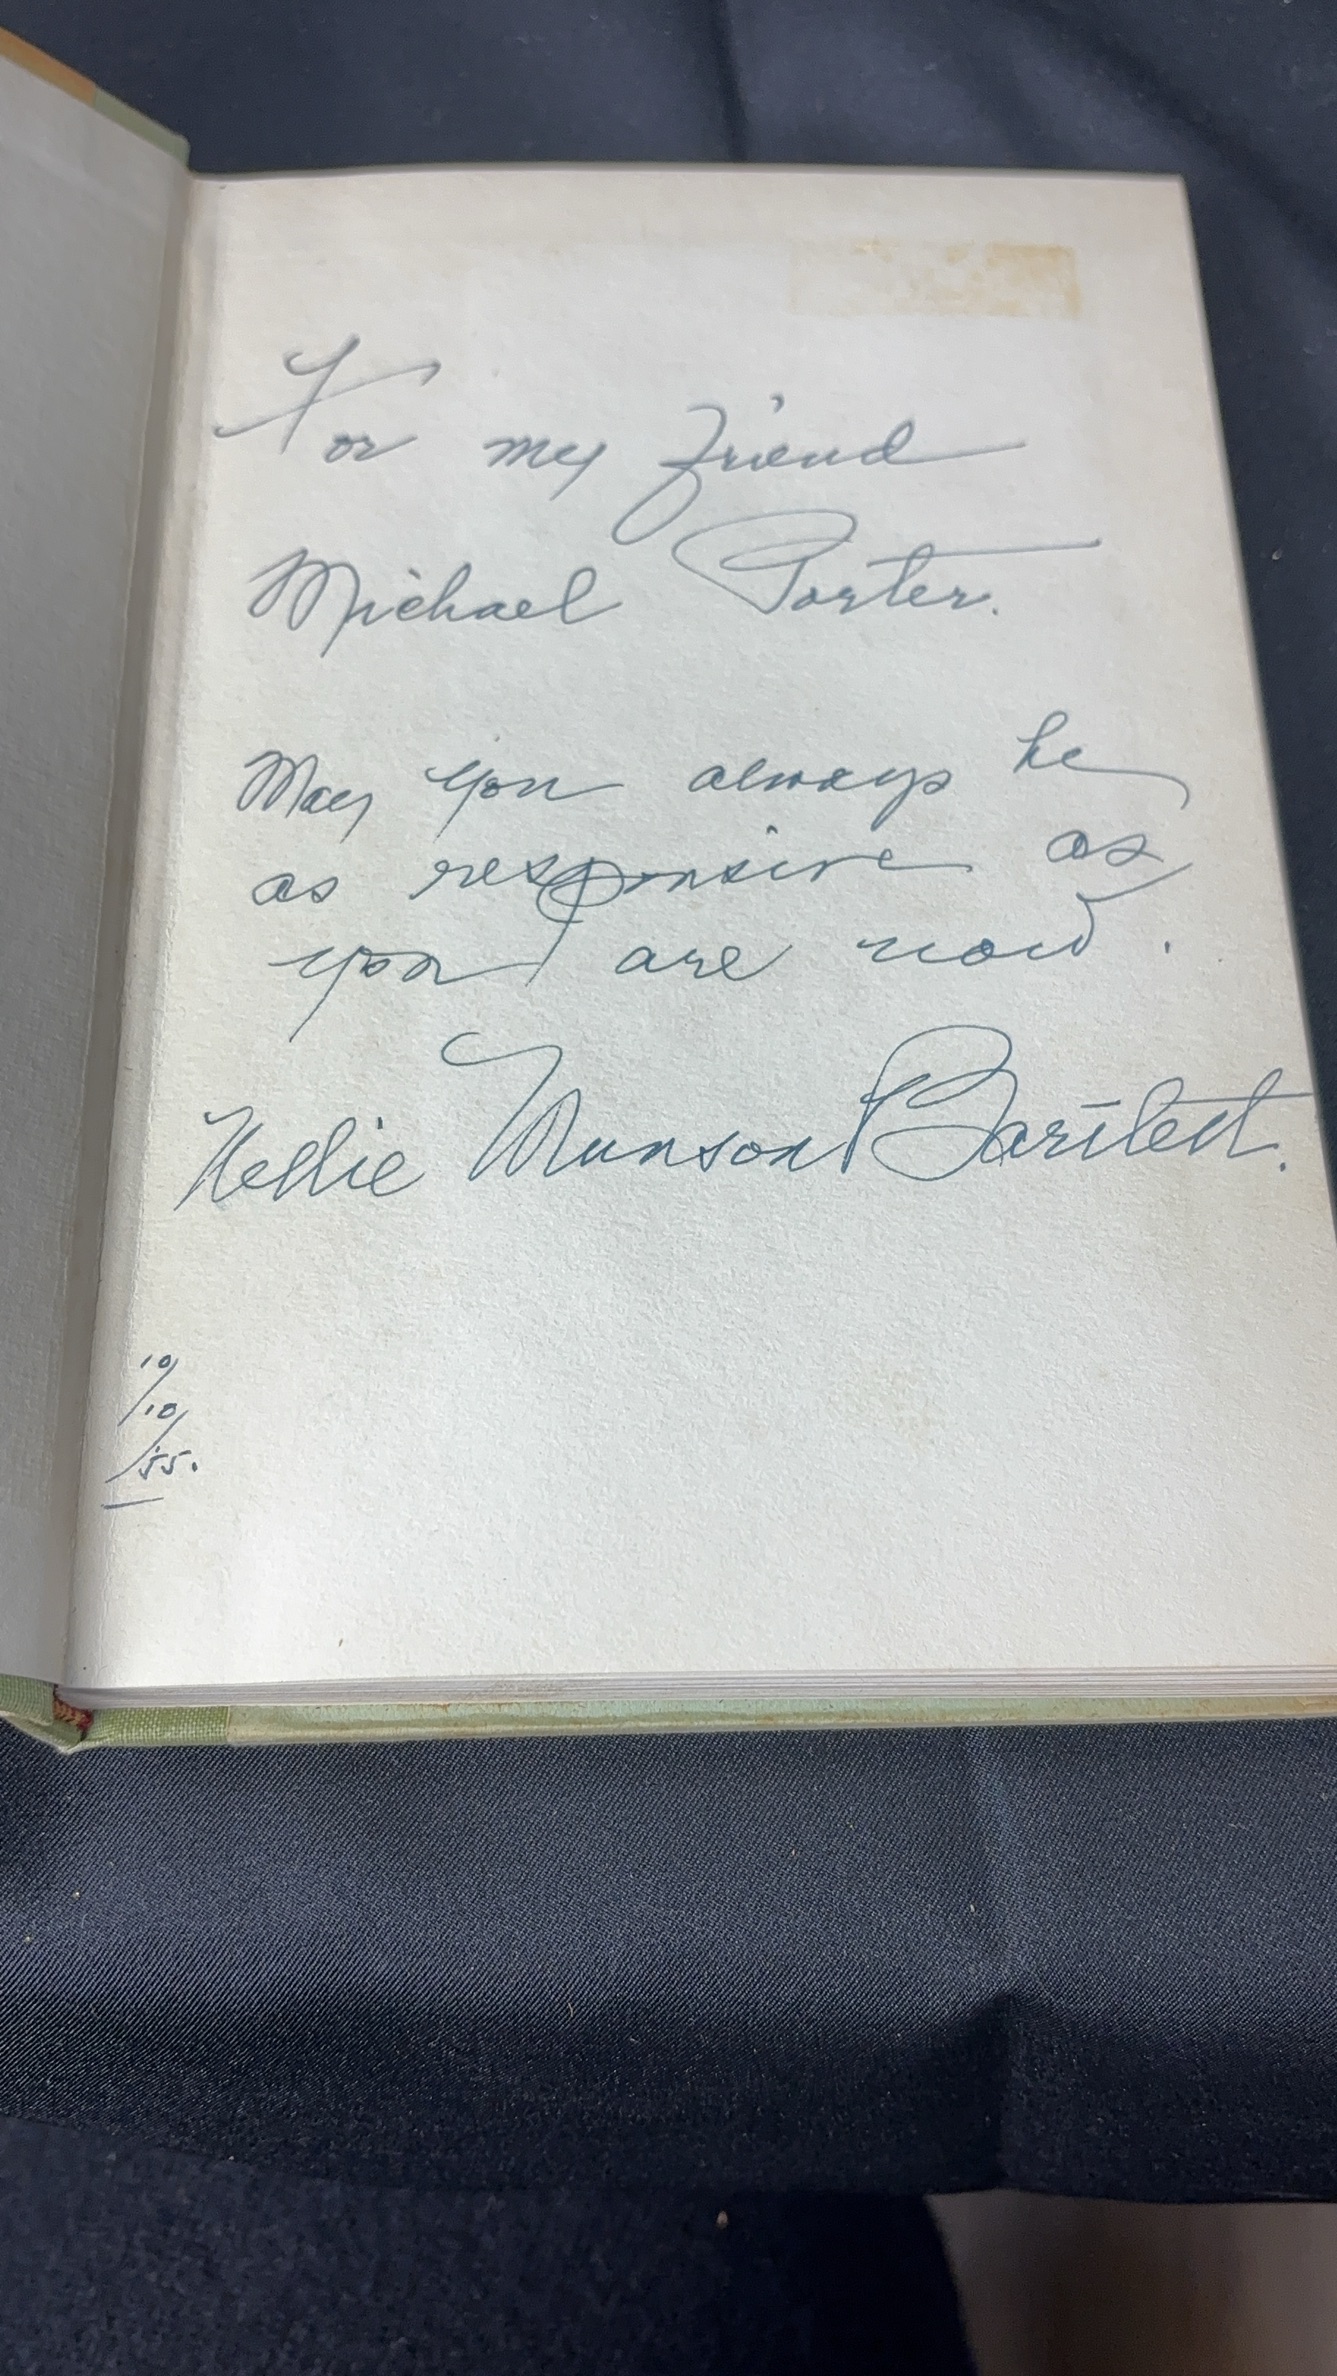 For my friend
Michael Porter.
May you always be
as responsive as
you are now.
Nellie Munson Bartlett.
10/
/10/
/55.